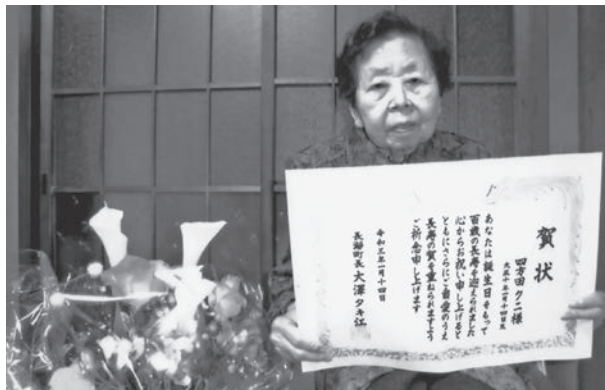 賀状
四方田クニ様
大正十年一月十四日生
あなたは誕生日をもって
百歳の長寿を迎えられました
心からお祝い申し上げると
ともにさらにご自愛のうえ
長寿の賀を重ねられますよう
ご祈念申し上げます
令和三年一月十四日
長瀞町長 大澤タキ江